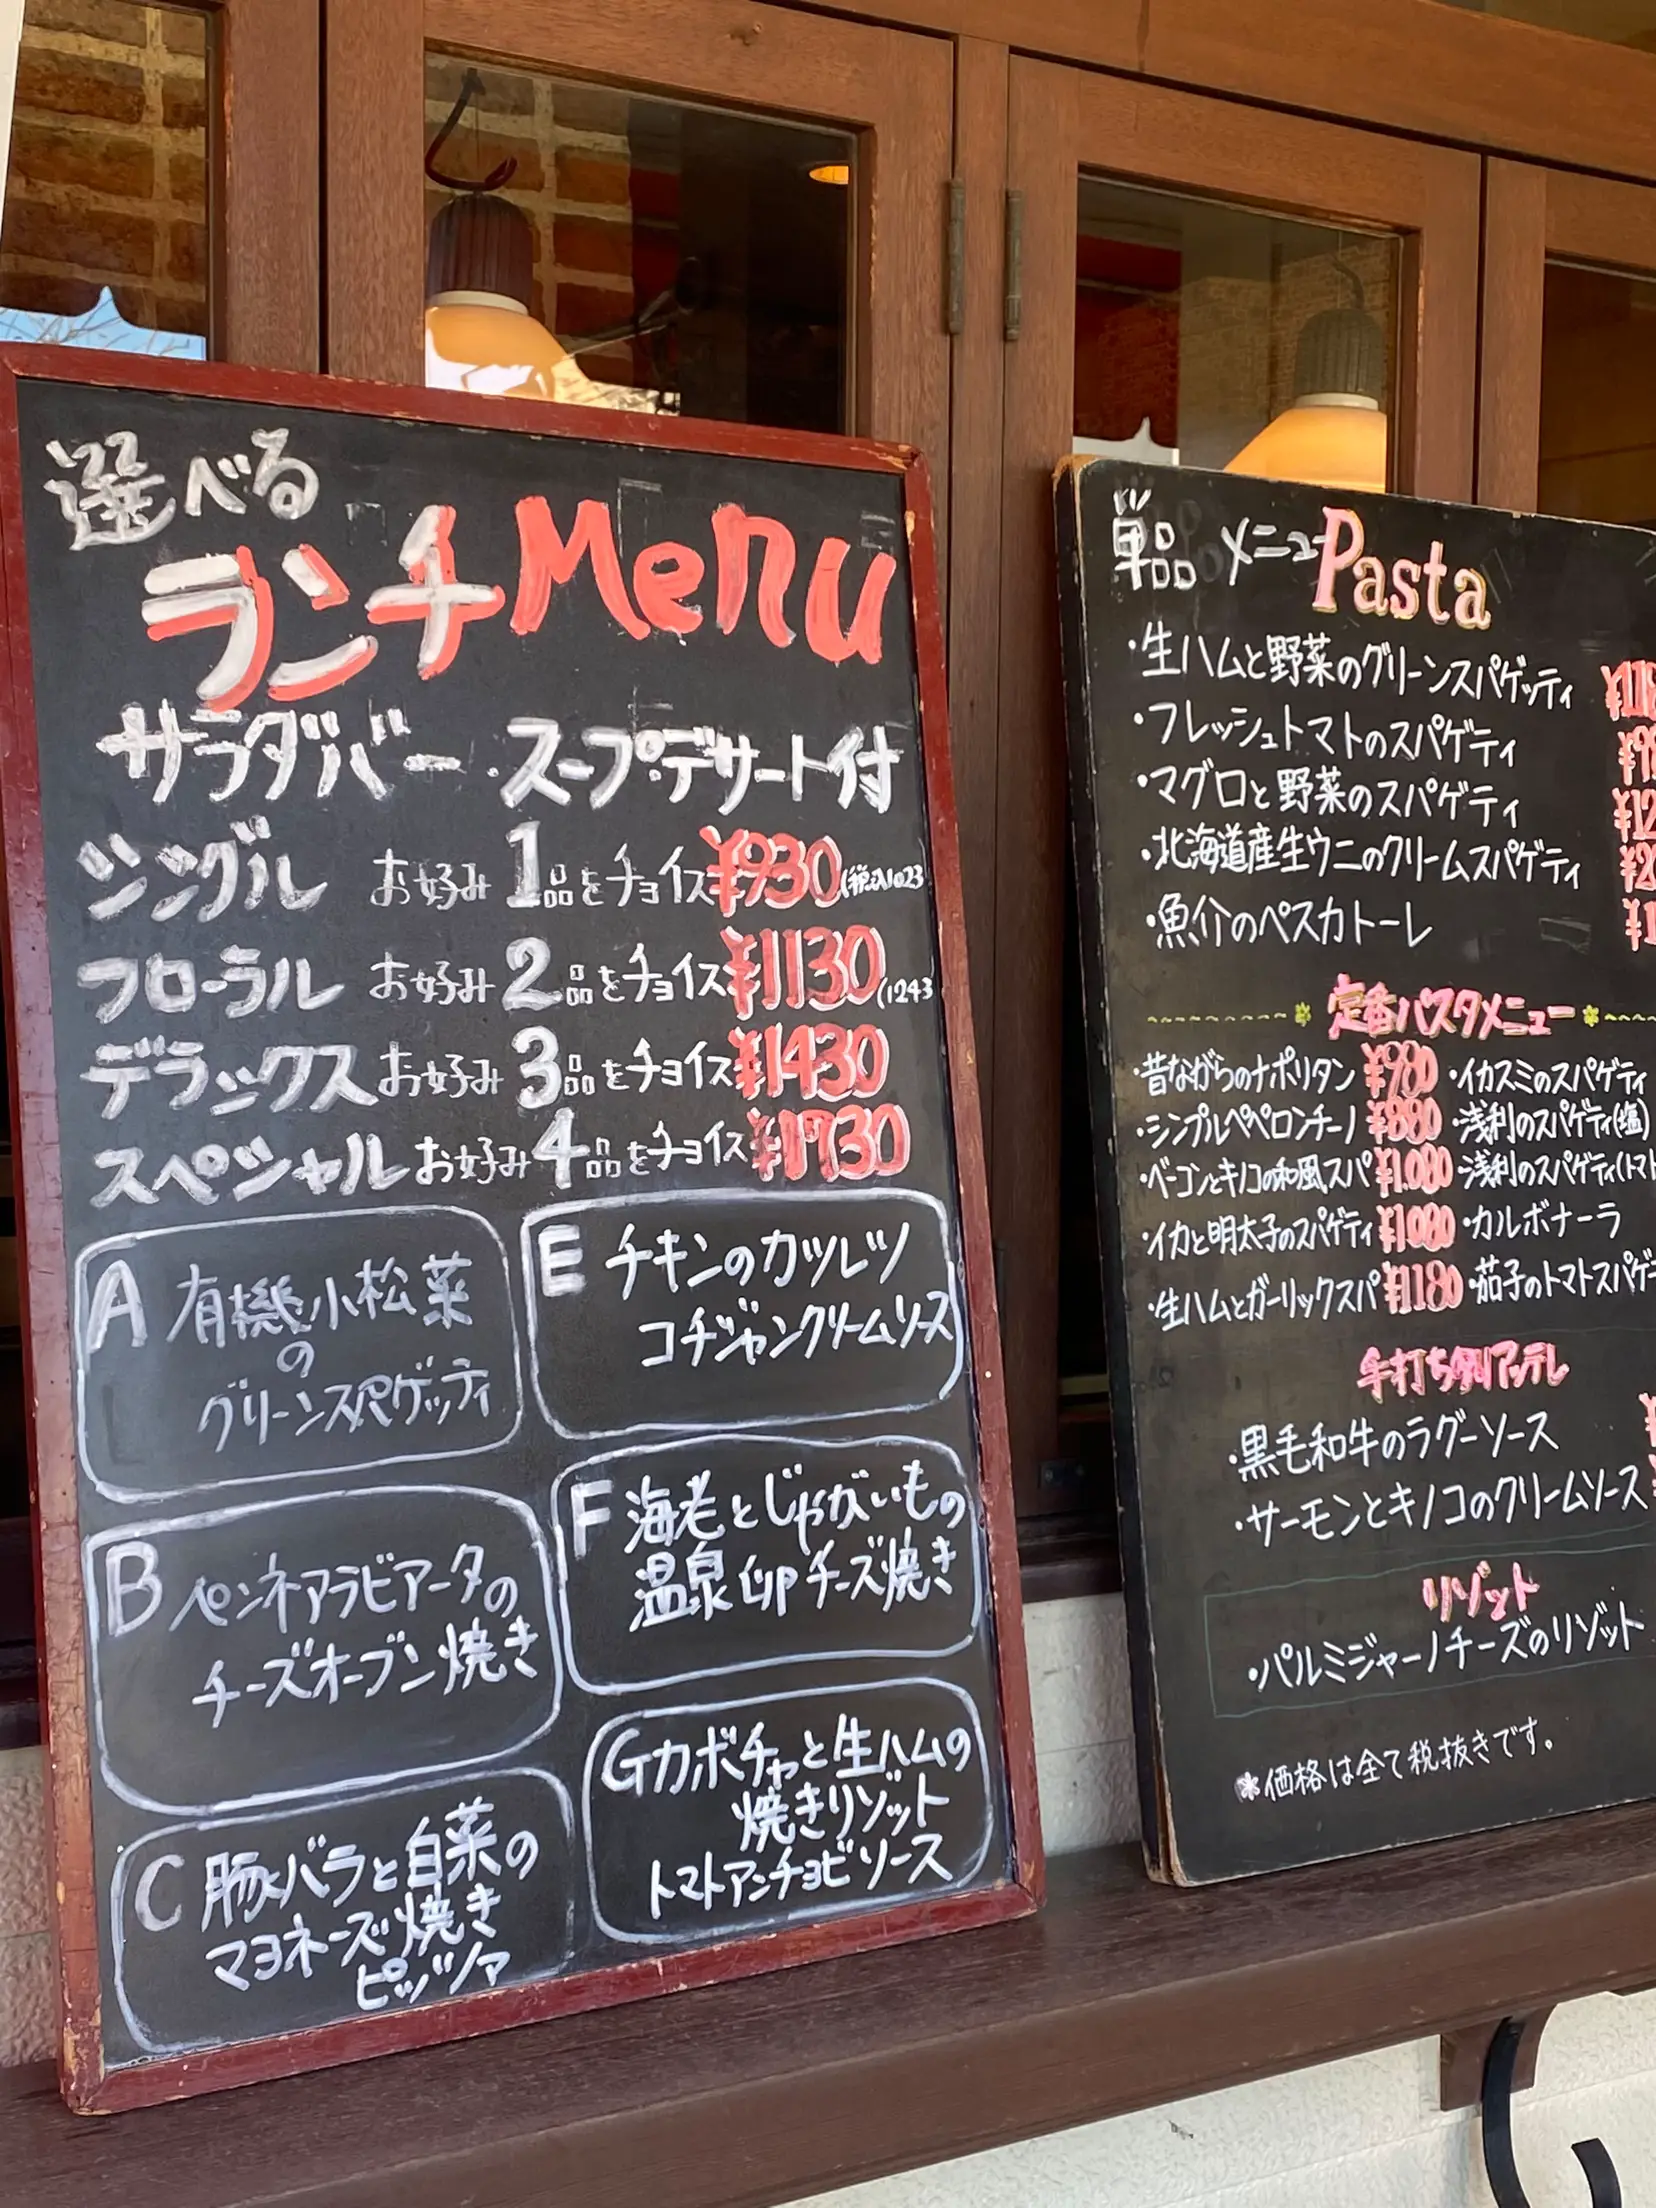 選べる
ランチMenu
サラダバー・スープ・デザート付
シングル お好み1品をチョイス¥930(税込1023
フローラル お好み2品をチョイス¥1130(1243
デラックス お好み3品をチョイス¥1430
スペシャル お好み4品をチョイス¥1730
A 有機小松菜
の
グリーンスパゲッティ
B ペンネアラビアータの
チーズオーブン焼き
C 豚バラと白菜の
マヨネーズ焼き
ピッツァ
E チキンのカツレツ
コチジャンクリームソース
F 海老とじゃがいもの
温泉卵チーズ焼き
G カボチャと生ハムの
焼きリゾット
トマトアンチョビソース
単品メニューPasta
・生ハムと野菜のグリーンスパゲッティ
・フレッシュトマトのスパゲティ
・マグロと野菜のスパゲティ
・北海道産生ウニのクリームスパゲティ
・魚介のペスカトーレ
定番パスタメニュー
・昔ながらのナポリタン ¥980 ・イカスミのスパゲティ
・シンプルペペロンチーノ ¥880 ・浅利のスパゲティ(塩)
・ベーコンとキノコの和風スパ ¥1.080 ・浅利のスパゲティ(トマト
・イカと明太子のスパゲティ ¥1080 ・カルボナーラ
・生ハムとガーリックスパ ¥1180 ・茄子のトマトスパゲ
手打ちタリアッテレ
・黒毛和牛のラグーソース
・サーモンとキノコのクリームソース
リゾット
・パルミジャーノチーズのリゾット
*価格は全て税抜きです。